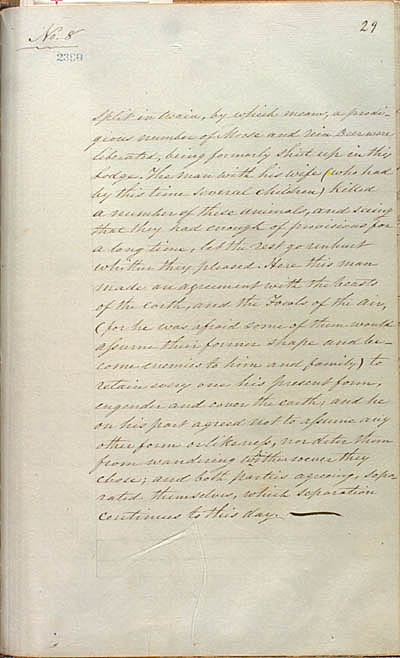 No. 8
29
2380
split in twain, by which means, a prodi-
gious number of Moose and rein Deer were
liberated, being formerly shut up in this
Lodge. The man with his wife (who had
by this time several children) killed
a number of these animals, and seeing
that they had enough of provisions for
a long time, let the rest go unhurt
whither they pleased. Here this man
made an agreement with the beasts
of the earth, and the Fowls of the air,
(for he was afraid some of them would
assume their former shape and be-
come enemies to him and family) to
retain every one his present form,
engender and cover the earth, and he
on his part agreed not to assume any
other form or likeness, nor deter them
from wandering whithersoever they
chose; and both parties agreeing, sepa-
rated themselves, which separation
continues to this day.